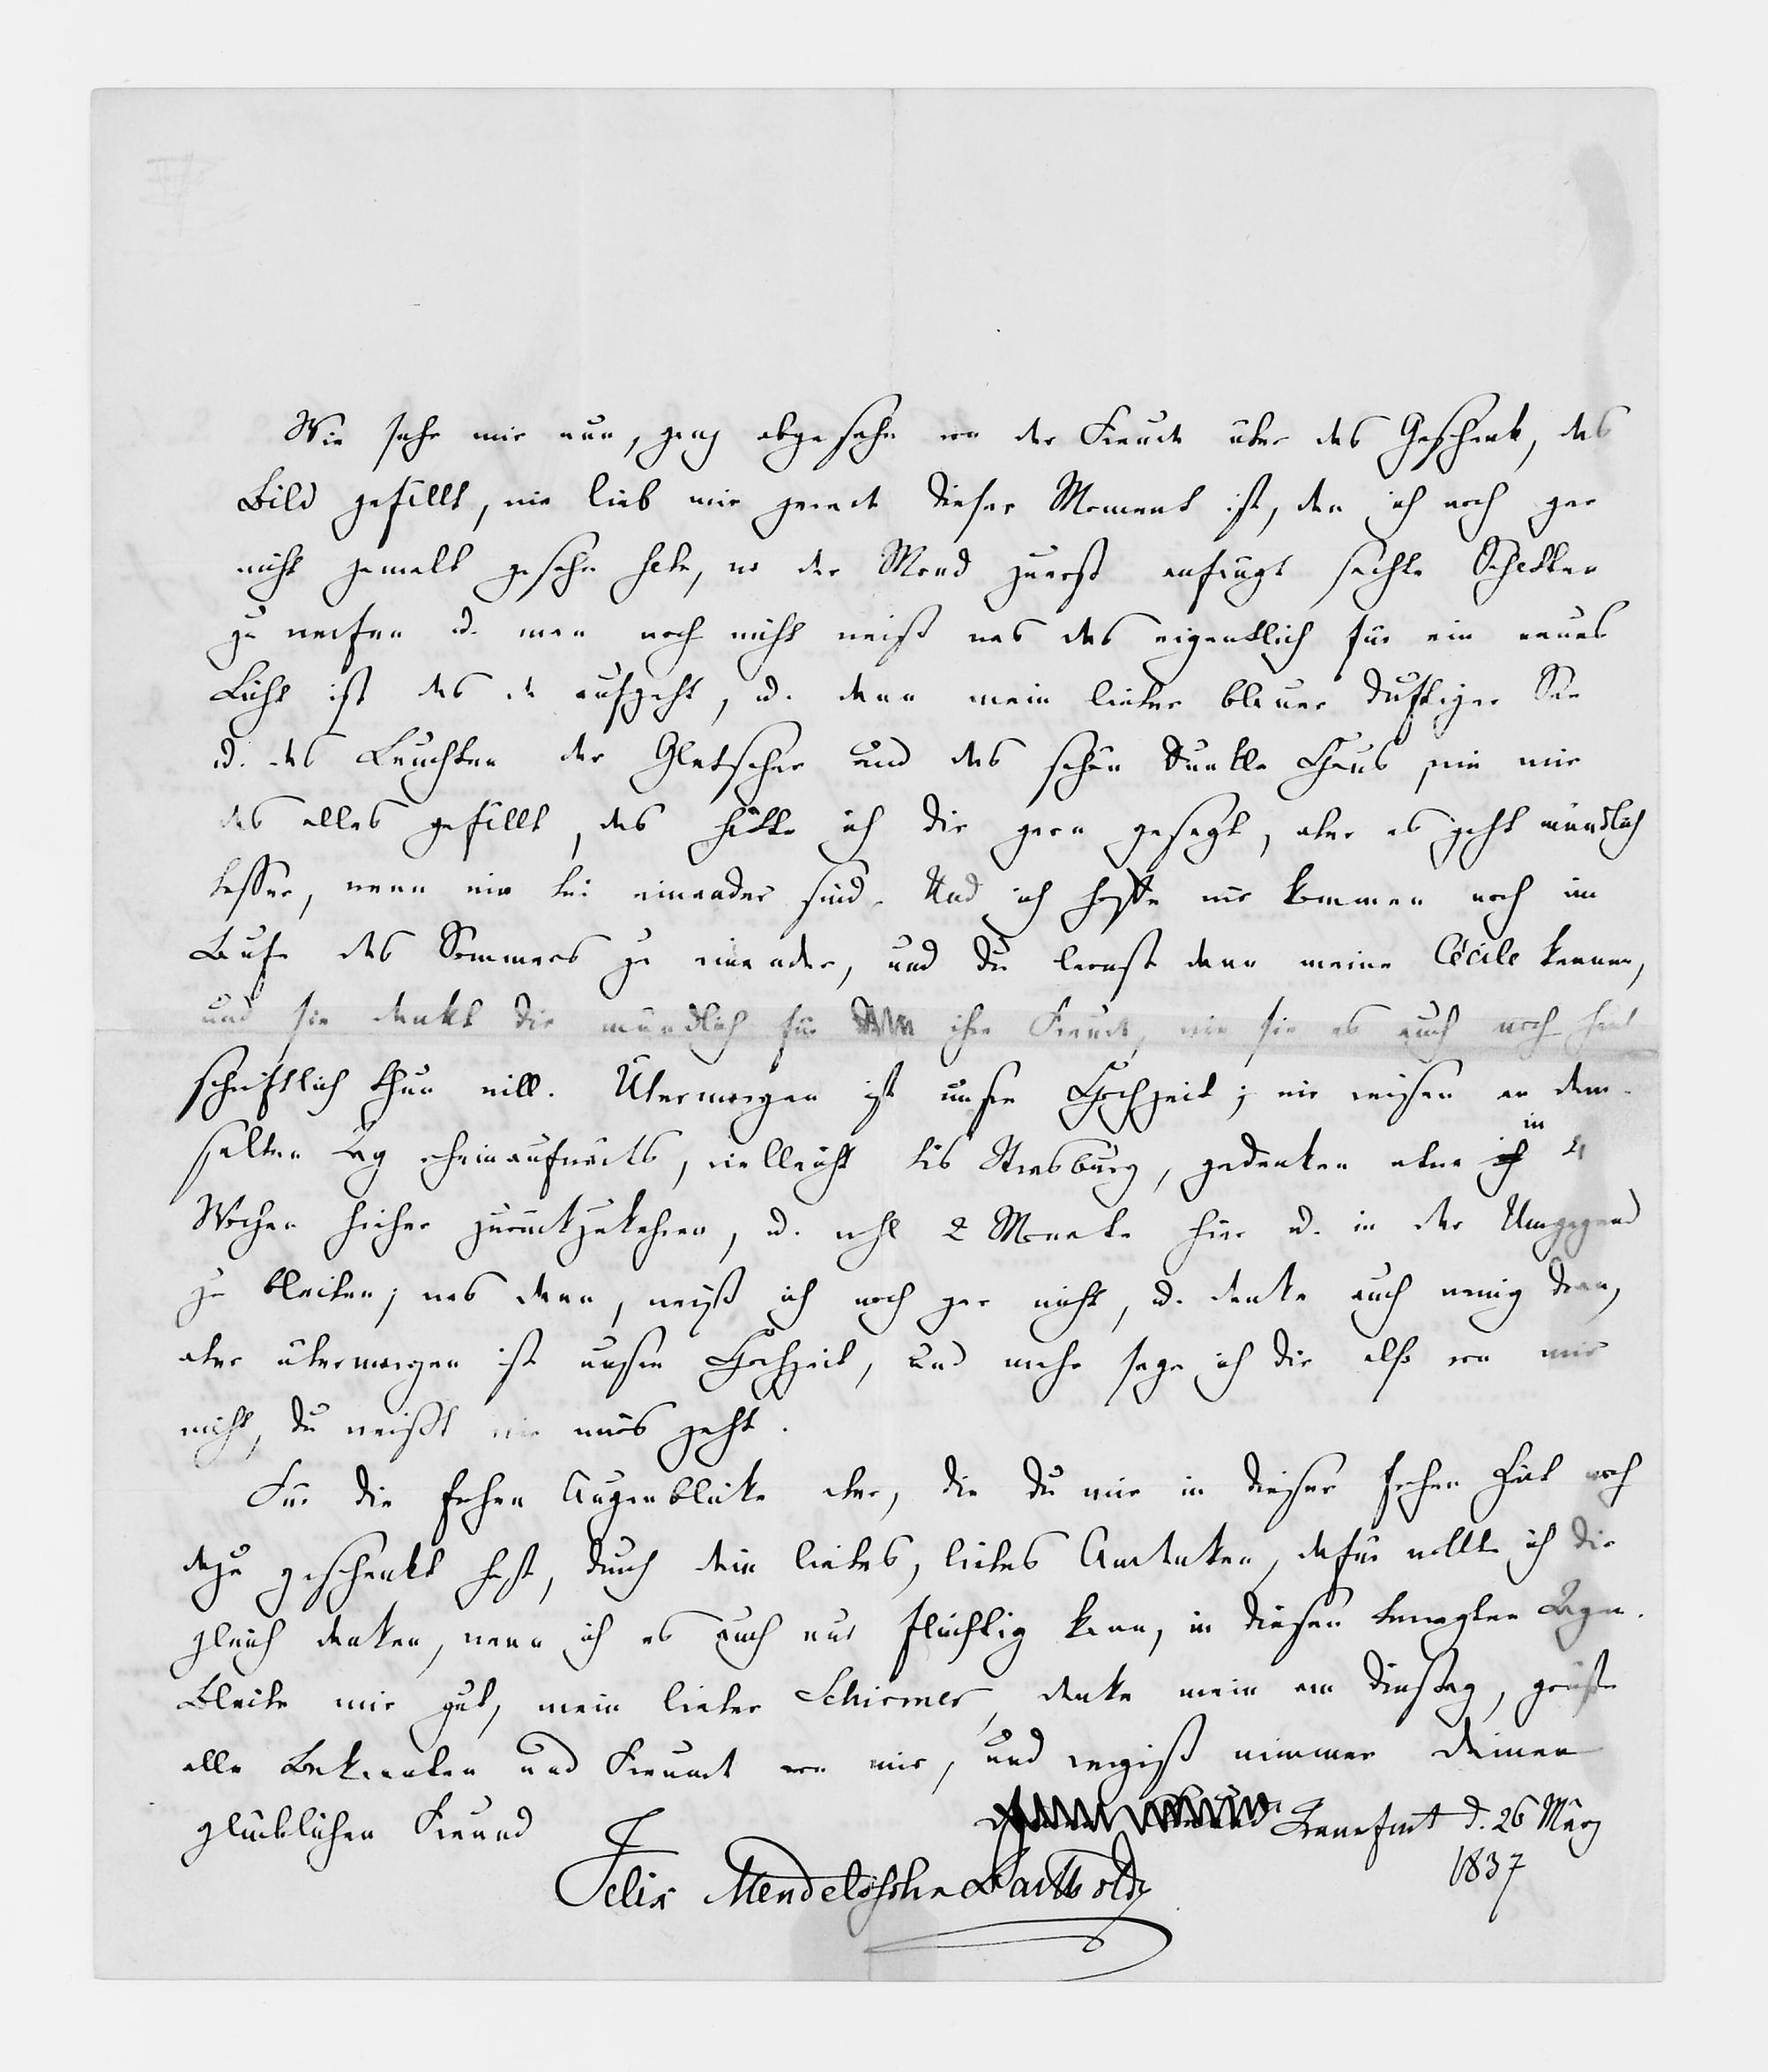 Wie sehr mir nun, ganz abgesehn von der Freude über das Geschenk, das
Bild gefällt, wie lieb mir gerade dieser Moment ist, den ich noch gar
nicht gemalt gesehn habe, wo der Mond zuerst anfängt sachte Schatten
zu werfen u. man noch nicht weiß was das eigentlich für ein neues
Licht ist das da aufgeht, u. dann mein lieber blauer duftiger See
u. das Leuchten der Gletscher und das schön dunkle Haus, wie mir
das alles gefällt, das hätte ich dir gern gesagt, aber es geht mündlich
besser, wenn wir bei einander sind. Und ich hoffe wir kommen noch im
Laufe des Sommers zu einander, und du lernst dann meine Cécile kennen,
und sie dankt dir mündlich für ihre Freude, wie sie es auch noch heut
schriftlich thun will. Übermorgen ist unsre Hochzeit; wir reisen an dem-
selben Tag rheinaufwärts, vielleicht bis Strasburg, gedenken aber in 4
Wochen hieher zurückzukehren, u. wohl 2 Monate hier u. in der Umgegend
zu bleiben; was dann, weiß ich noch gar nicht, u. denke auch wenig dran,
aber übermorgen ist unsre Hochzeit, und mehr sage ich dir also von mir
nicht, du weißt wie mirs geht.
Für die frohen Augenblicke aber, die du mir in dieser frohen Zeit noch
dazu geschenkt hast, durch dein liebes, liebes Andenken, dafür wollte ich dir
gleich danken, wenn ich es auch nur flüchtig kann, in diesen bewegten Tagen.
Bleibe mir gut, mein lieber Schirmer, denke mein am Dinstag, grüße
alle Bekannten und Freunde von mir, und vergiß nimmer deinen
glücklichen Freund
Frankfurt d. 26 März
1837
Felix Mendelssohn Bartholdy